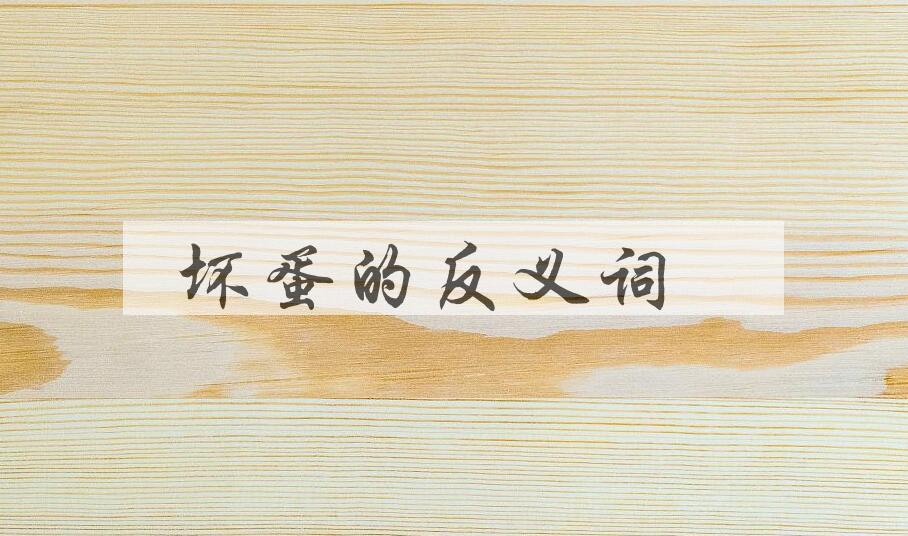 坏蛋的反义词